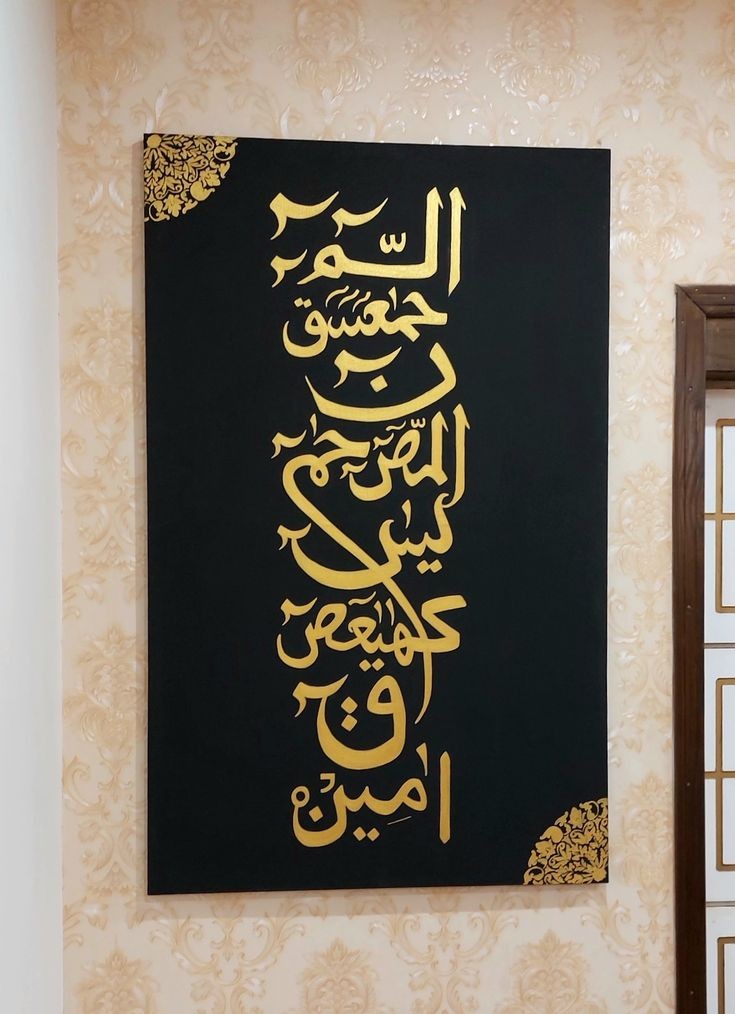 الٓمّٓ
حمٰعٓسٓقٓ
نٓ
المّٓصٓ حٰمٓ
يٰسٓ
كٓهٰيٰعٓصٓ
قٓ
اٰمِيْن